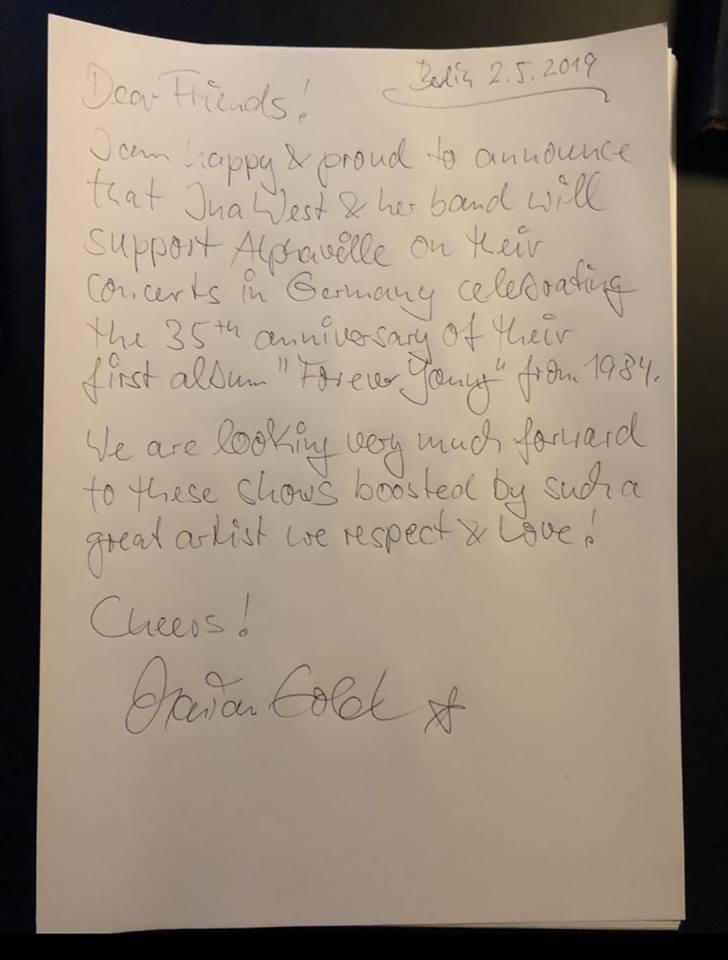 Berlin 2.5.2019
Dear Friends!
I am happy & proud to announce
that Ina West & her band will
support Alphaville on their
concerts in Germany celebrating
the 35th anniversary of their
first album "Forever Young" from 1984.
We are looking very much forward
to these shows boosted by such a
great artist we respect & love!
Cheers!
Marian Gold